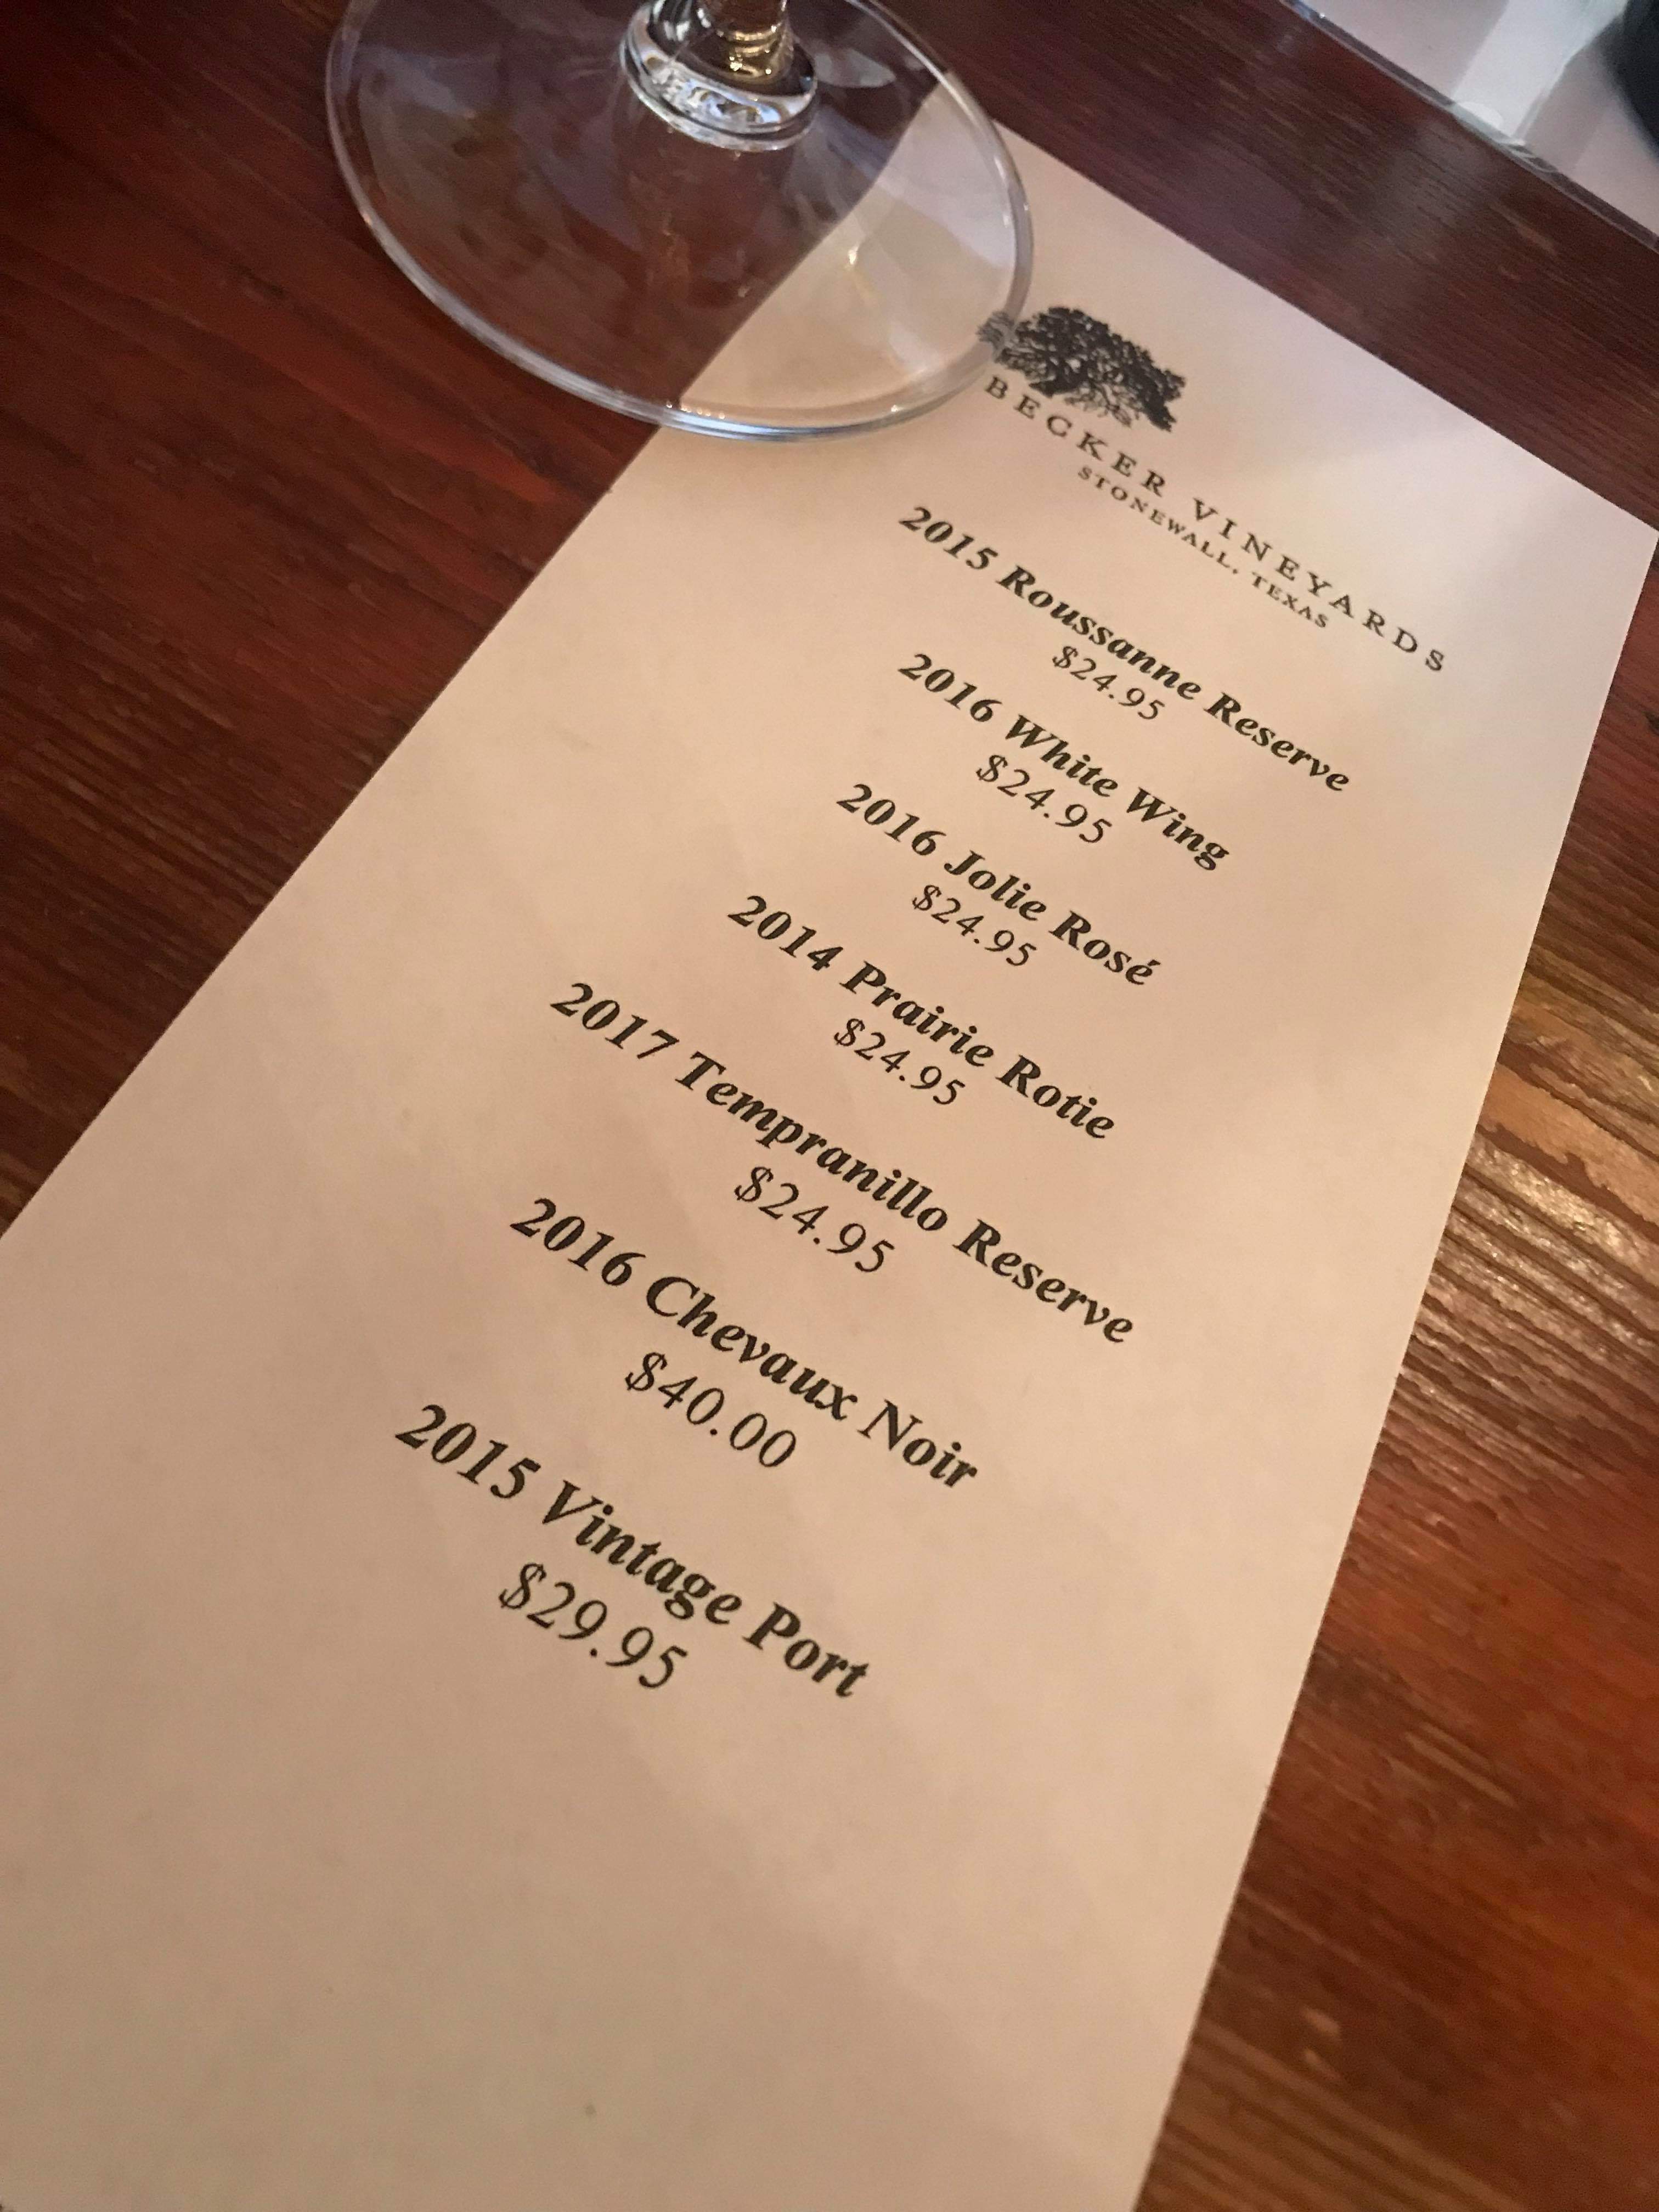 BECKER VINEYARDS
STONEWALL, TEXAS
2015 Roussanne Reserve
$24.95
2016 White Wing
$24.95
2016 Jolie Rosé
$24.95
2014 Prairie Rotie
$24.95
2017 Tempranillo Reserve
$24.95
2016 Chevaux Noir
$40.00
2015 Vintage Port
$29.95